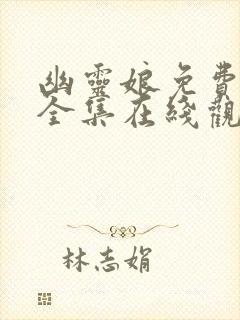 幽靈娘免費
全集在綫觀
林志娟